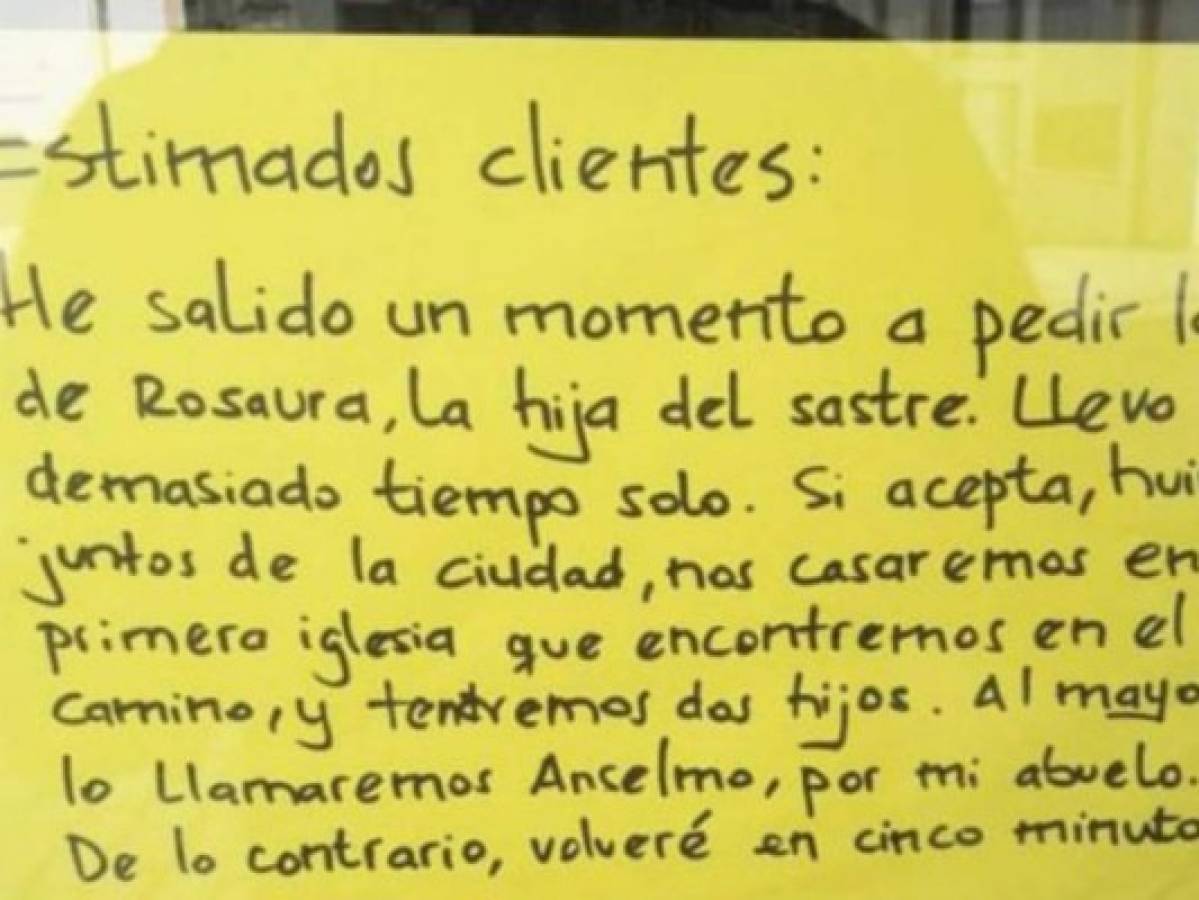 Estimados clientes:
He salido un momento a pedir
de Rosaura, la hija del sastre. Llevo
demasiado tiempo solo. Si acepta,
juntos de la ciudad, nos casaremos en
primera iglesia que encontremos en el
camino, y tendremos dos hijos. Al
lo llamaremos Anselmo, por mi abuelo.
De lo contrario, volveré en cinco